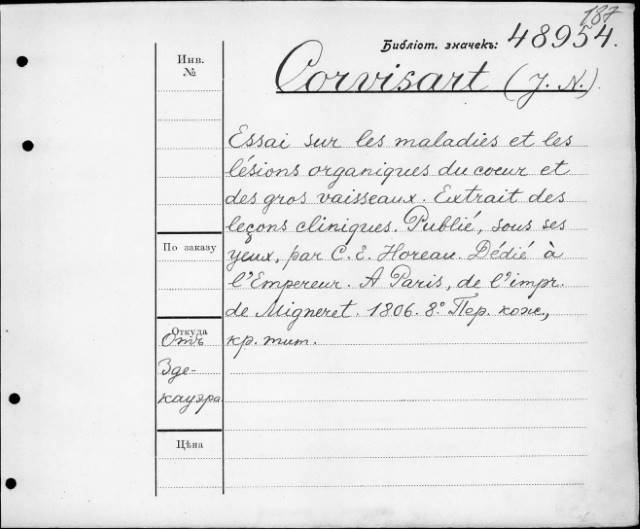 187
Библіот. значекъ: 48954.
Corvisart (J. N.)
Инв.
№
Essai sur les maladies et les
lésions organiques du coeur et
des gros vaisseaux. Extrait des
leçons cliniques. Publié, sous ses
По заказу
yeux, par C. E. Horeau. Dédié à
l'Empereur. A Paris, de l'impr.
de Migneret. 1806. 8° Пер. кож,
Откуда
Отъ
кр. тит.
Зде-
кауэра
Цѣна